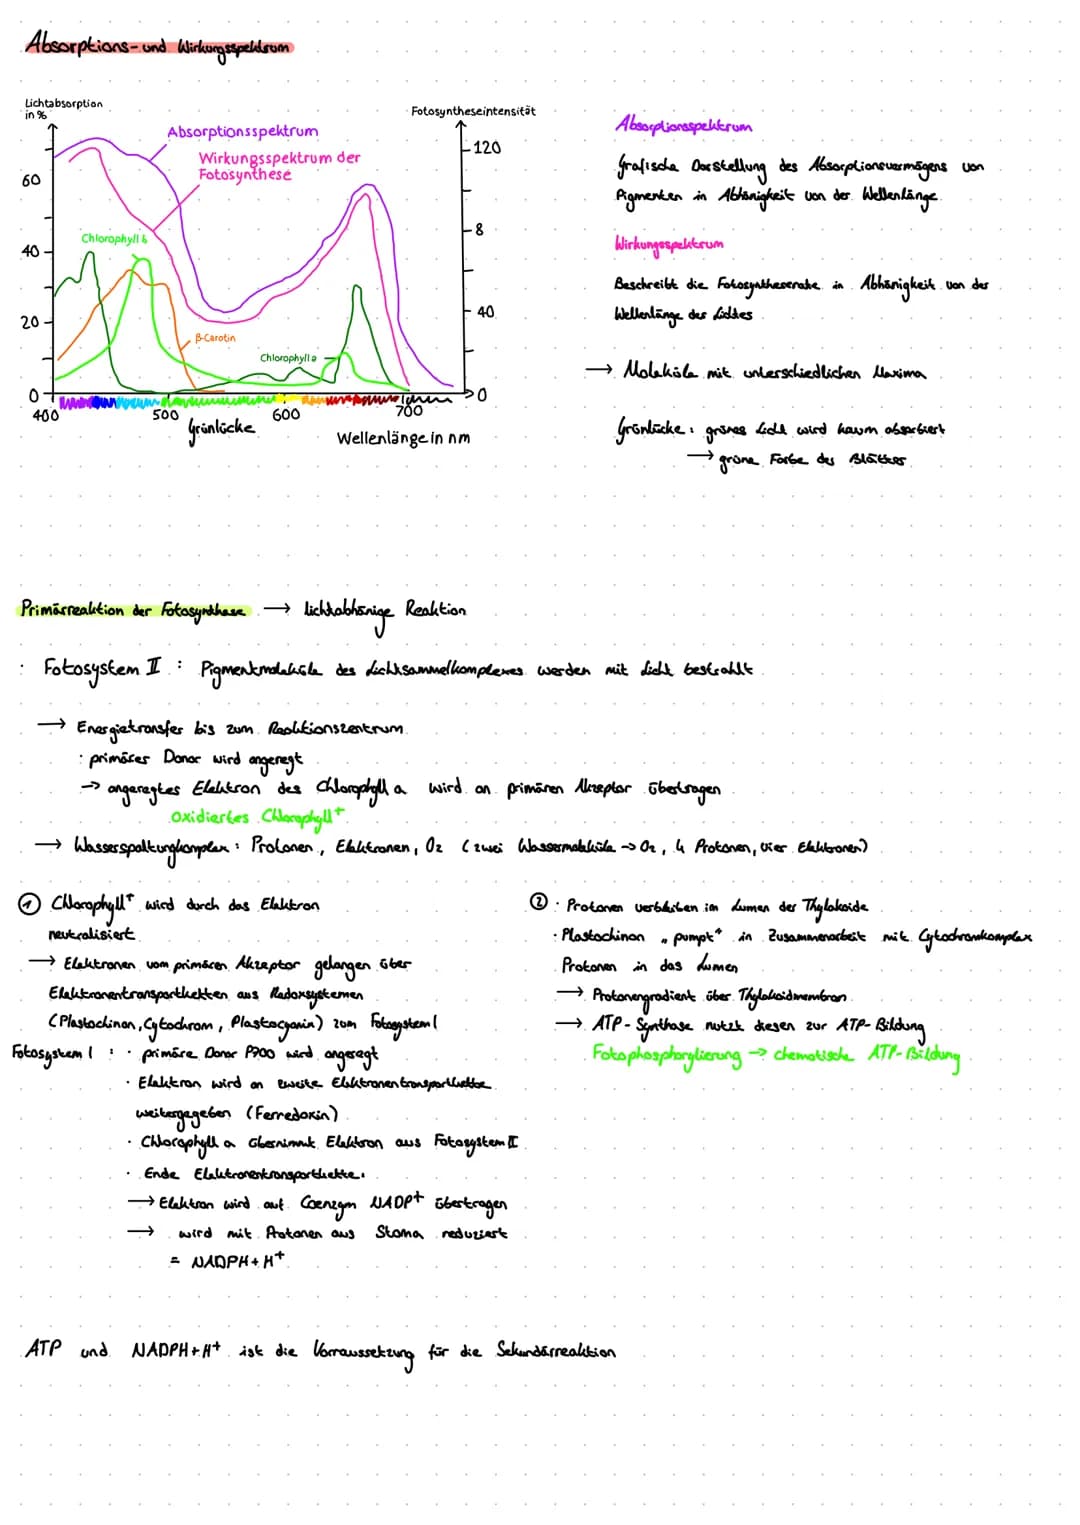 Absorptions- und Wirkungsspektrum
Lichtabsorption
in %
Fotosyntheseintensität
Absorptionsspektrum
Wirkungsspektrum der
Fotosynthese
Chlorophyll b
β-Carotin
Chlorophyll a
60
40
20
0
120
8
40
0
400
500
600
700
Grünlücke
Wellenlänge in nm
Absorptionsspektrum
Grafische Darstellung des Absorptionsvermögens von
Pigmenten in Abhänigkeit von der Wellenlänge
Wirkungsspektrum
Beschreibt die Fotosyntheserate in Abhänigkeit von der
Wellenlänge des Lichtes
→ Moleküle mit unterschiedlichen Maxima
Grünlücke: grünes Licht wird kaum absorbiert
→ grüne Farbe der Blätter
Primärreaktion der Fotosynthese → lichtabhänige Reaktion
· Fotosystem II : Pigmentmoleküle des Lichtsammelkomplexes werden mit Licht bestrahlt
→ Energietransfer bis zum Reaktionszentrum
· primärer Donor wird angeregt
→ angeregtes Elektron des Chlorophyll a wird an primären Akzeptor übertragen
oxidiertes Chlorophyll⁺
→ Wasserspaltungkomplex: Protonen, Elektronen, O2 (zwei Wassermoleküle → O2, 4 Protonen, vier Elektronen)
① Chlorophyll⁺ wird durch das Elektron
neutralisiert
→ Elektronen vom primären Akzeptor gelangen über
Elektronentransportketten aus Redoxsystemen
(Plastochinon, Cytochrom, Plastocyanin) zum Fotosystem I
Fotosystem I : · primäre Donor P700 wird angeregt
· Elektron wird an zweite Elektronentransportkette
weitergegeben (Ferredoxin)
· Chlorophyll a übernimmt Elektron aus Fotosystem II
· Ende Elektronentransportkette:
→ Elektron wird auf Coenzym NADP⁺ übertragen
→ wird mit Protonen aus Stoma reduziert
= NADPH + H⁺
② · Protonen verbleiben im Lumen der Thylakoide
· Plastochinon „pumpt“ in Zusammenarbeit mit Cytochromkomplex
Protonen in das Lumen
→ Protonengradient über Thylakoidmembran
→ ATP-Synthase nutzt diesen zur ATP-Bildung
Fotophosphorylierung → chemotische ATP-Bildung
ATP und NADPH+H⁺ ist die Vorraussetzung für die Sekundärreaktion